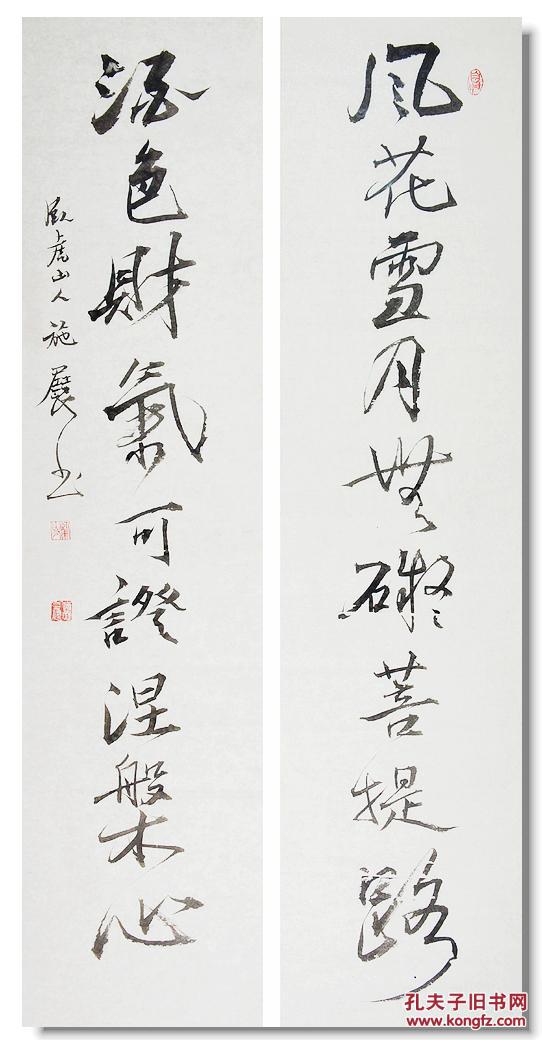 风花雪月無礙菩提路
酒色財氣可證涅槃心
臥虎山人施展书
孔夫子旧书网
www.kongfz.com